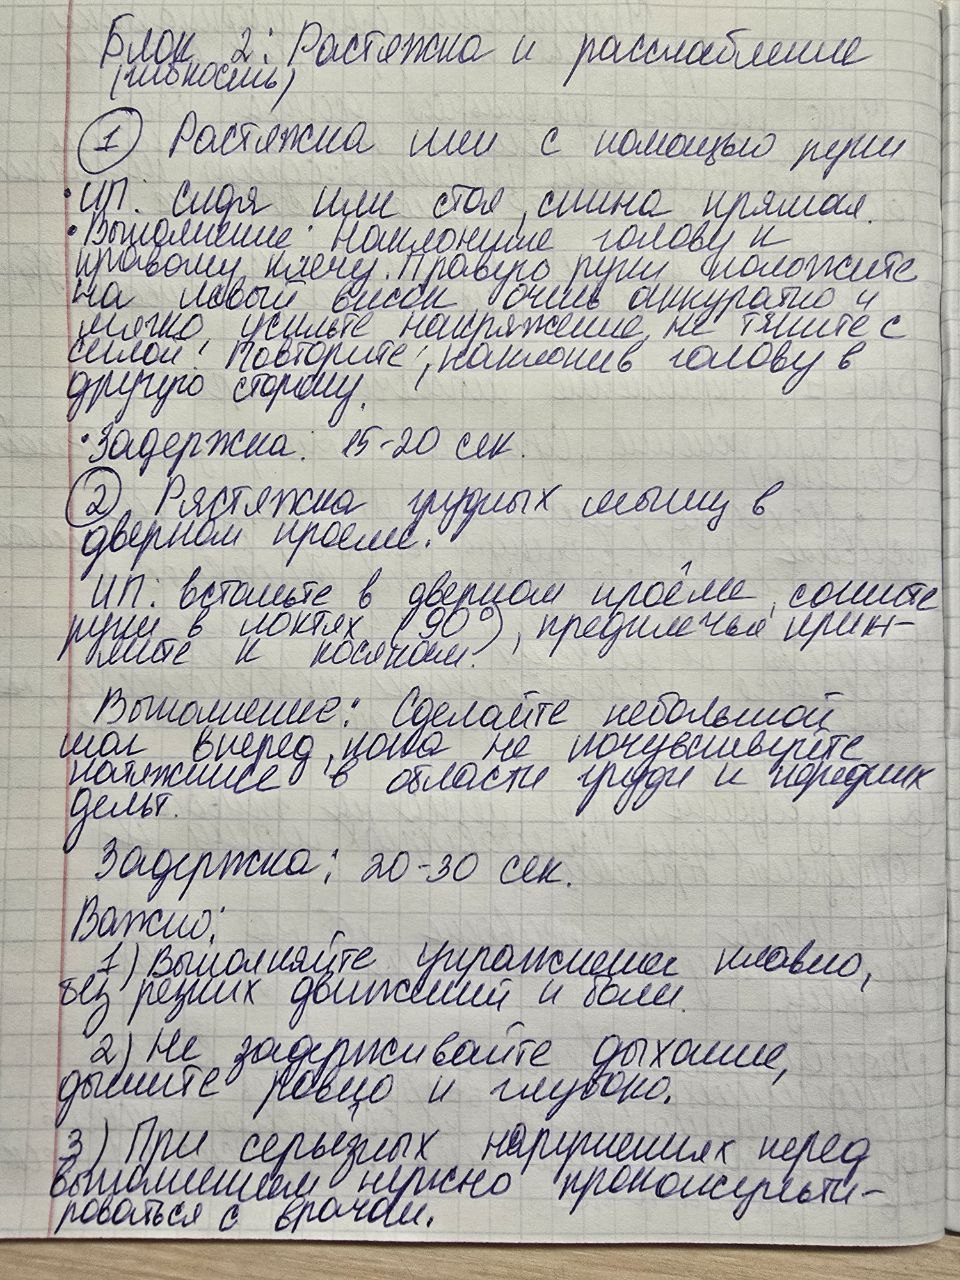 Блок 2: Растяжка и расслабление
(гибкость)
1 Растяжка шеи с помощью руки
• ИП: сидя или стоя, спина прямая.
• Выполнение: Наклоните голову к
правому плечу. Правую руки положите
на левый висок очень аккуратно и
мягко усильте напряжение, не тяните с
силой! Повторите, наклонив голову в
другую сторону.
• Задержка: 15-20 сек.
2 Рястяжка грудных мышц в
дверном проеме.
ИП: встаньте в дверном проёме, согните
руки в локтях (90°), предплечья приж-
мите к косякам.
Выполнение: Сделайте небольшой
шаг вперед, пока не почувствуйте
натяжение в области груди и передних
дельт.
Задержка: 20-30 сек.
Важно:
1) Выполняйте упражнения плавно,
без резких движений и боли.
2) Не задерживайте дыхание,
дышите ровно и глубоко.
3) При серьезных нарушениях перед
выполнением нужно проконсульти-
роваться с врачом.